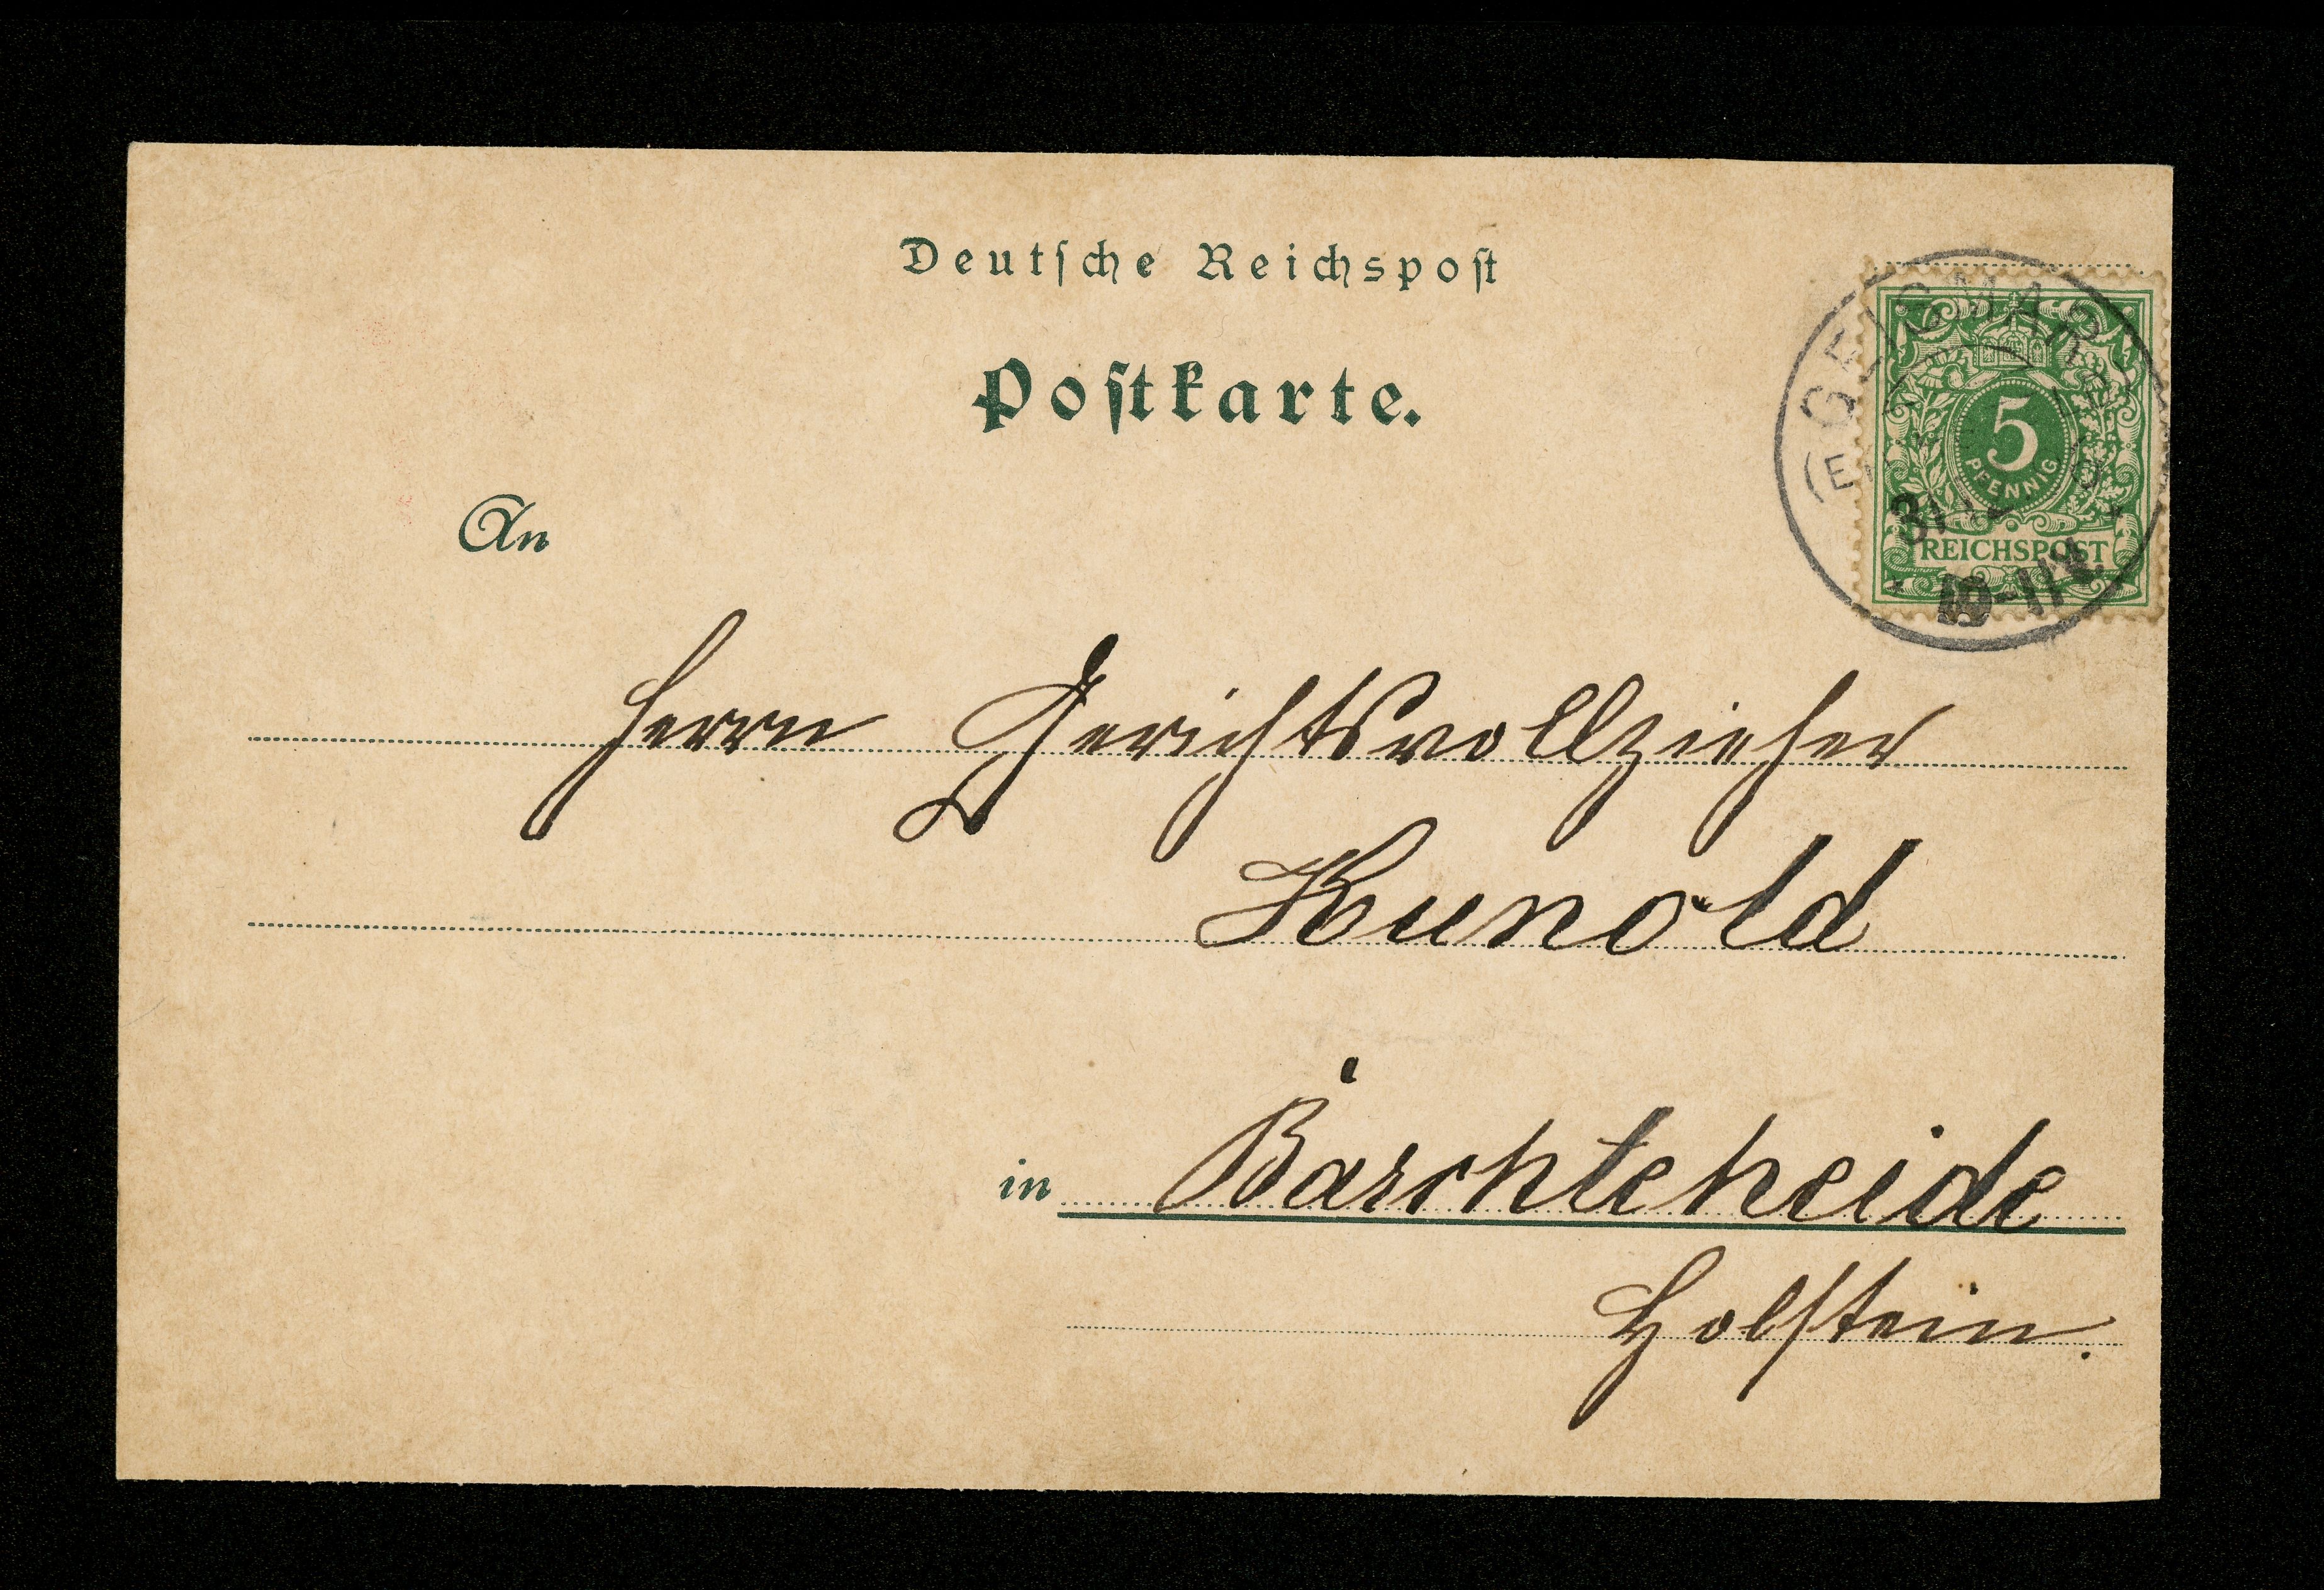 Deutſche Reichspoſt
Poſtkarte.
An
Herrn Gerichtsvollzieher
Kunold
in Barchteheide
Holstein.
GEISMAR
(E
5
PFENNIG
REICHSPOST